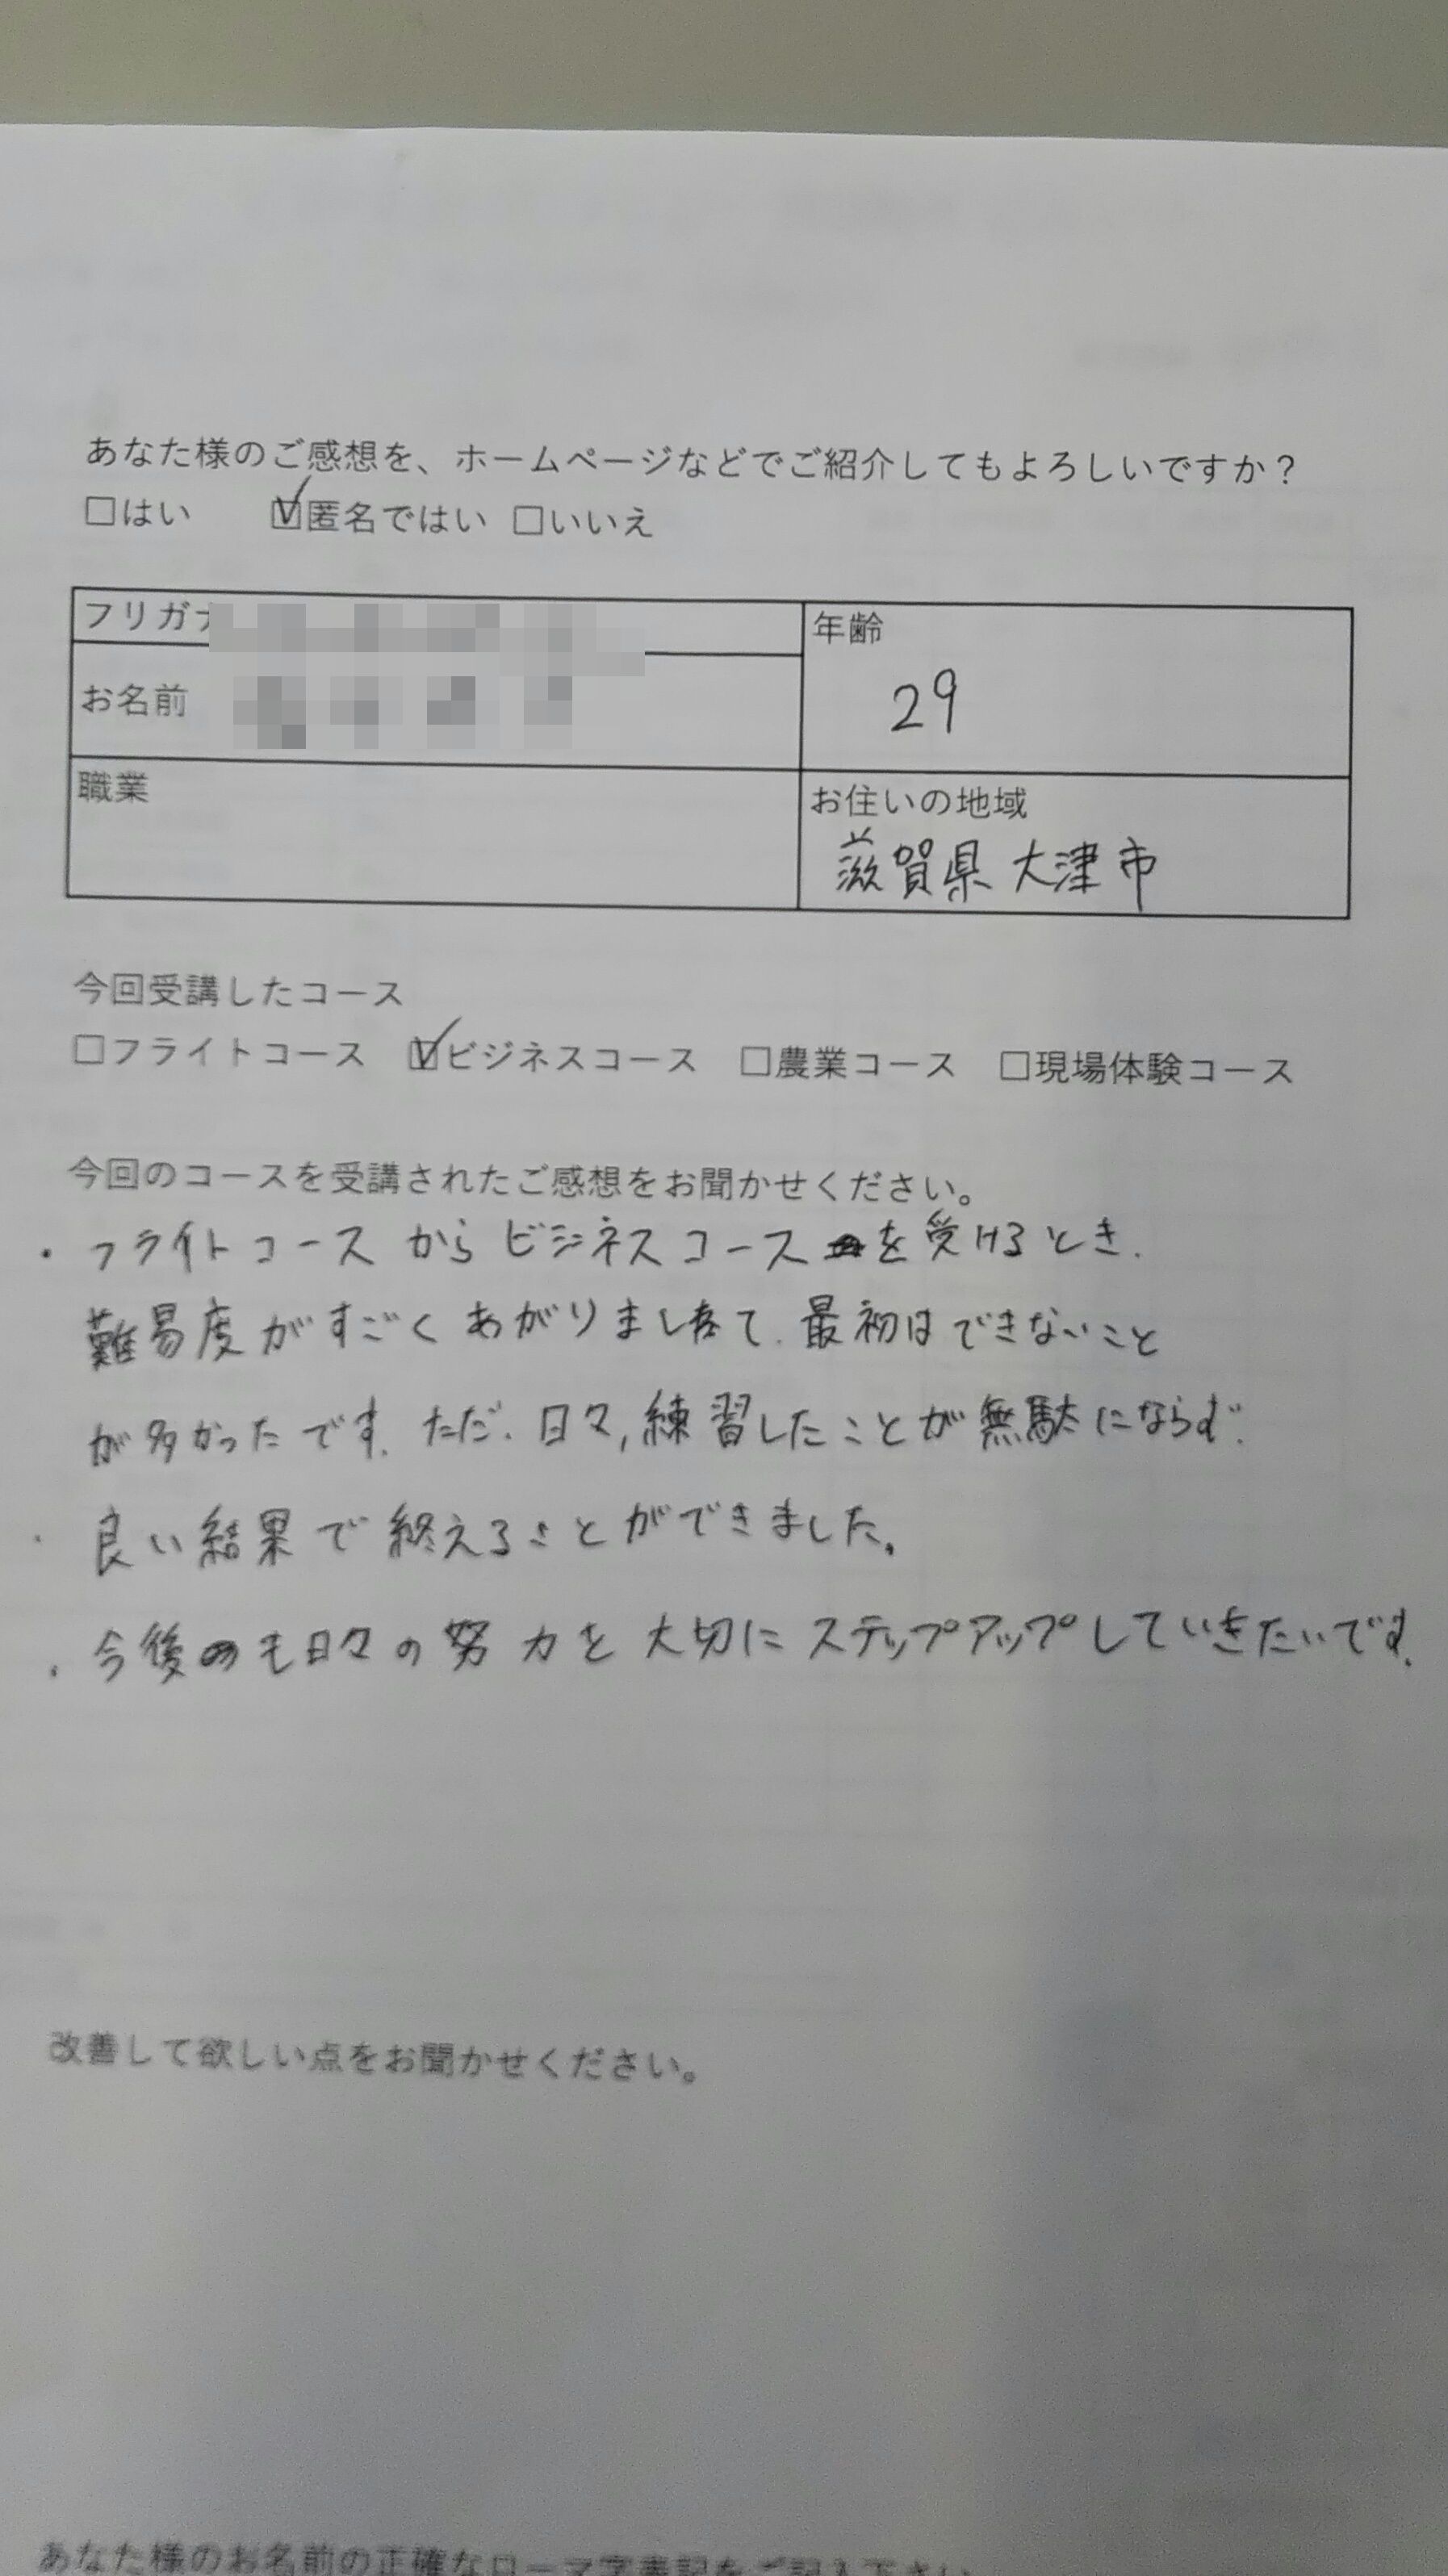 あなた様のご感想を、ホームページなどでご紹介してもよろしいですか？
□はい ☑匿名ではい □いいえ
フリガナ
お名前
年齢
29
職業
お住いの地域
滋賀県大津市
今回受講したコース
□フライトコース ☑ビジネスコース □農業コース □現場体験コース
今回のコースを受講されたご感想をお聞かせください。
・フライトコースからビジネスコースを受けるとき、
難易度がすごくあがりまして、最初はできないこと
が多かったです。ただ、日々,練習したことが無駄にならず、
良い結果で終えることができました。
・今後も日々の努力を大切にステップアップしていきたいです。
改善して欲しい点をお聞かせください。
あなた様のお名前の正確なローマ字表記をご記入下さい